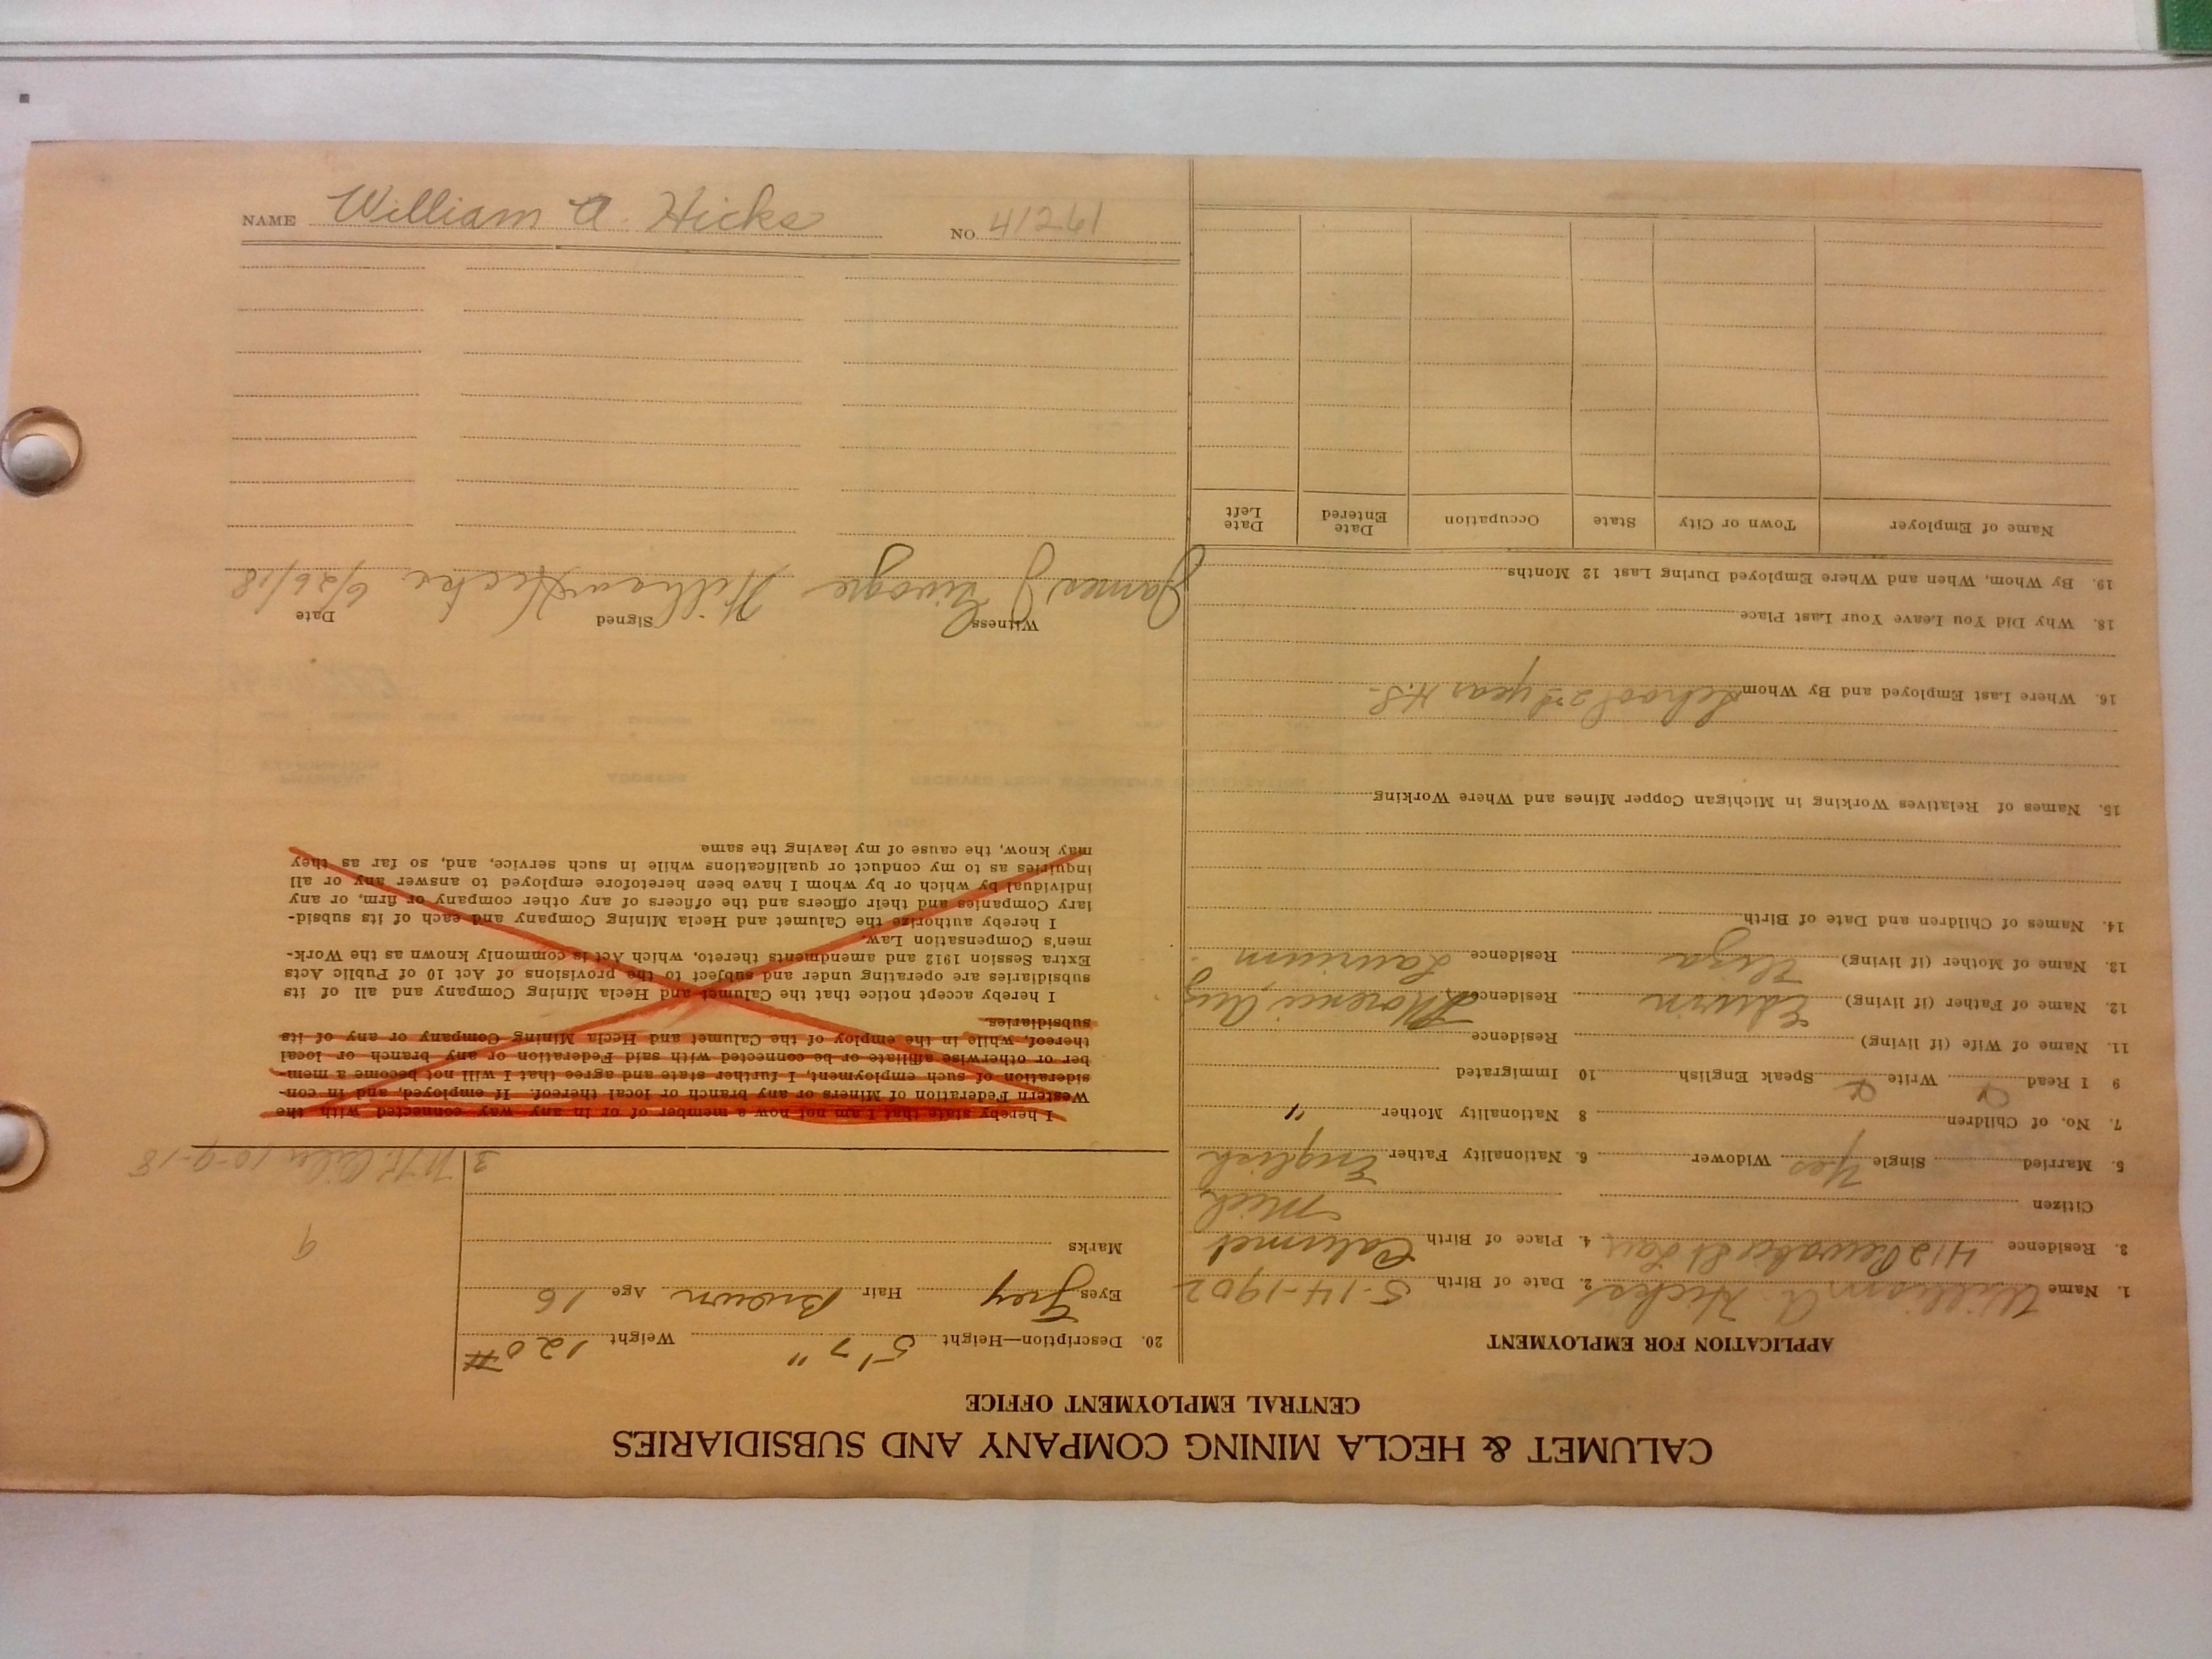 NAME William A. Hicks NO. 41261
CALUMET & HECLA MINING COMPANY AND SUBSIDIARIES
CENTRAL EMPLOYMENT OFFICE
APPLICATION FOR EMPLOYMENT
1. Name William A. Hicks 2. Date of Birth 5-14-1902
3. Residence 412 Pewabic St Lau 4. Place of Birth Calumet
Citizen Mich
5. Married Single Yes Widower 6. Nationality Father English
7. No. of Children 8 Nationality Mother "
9 I Read Write Speak English 10 Immigrated
11. Name of Wife (if living) Residence
12. Name of Father (if living) Edwin Residence Morenci, Ariz
13. Name of Mother (if living) Eliza Residence Laurium
14. Names of Children and Date of Birth
15. Names of Relatives Working in Michigan Copper Mines and Where Working
16. Where Last Employed and By Whom School 2nd year H.S.
18. Why Did You Leave Your Last Place
19. By Whom, When and Where Employed During Last 12 Months
Name of Employer Town or City State Occupation Date Entered Date Left
20. Description—Height 5' 7" Weight 120 #
Eyes Grey Hair Brown Age 16
Marks
9
3 10-9-18
I hereby state that I am not now a member of or in any way connected with the
Western Federation of Miners or any branch or local thereof. If employed, and in con-
sideration of such employment, I further state and agree that I will not become a mem-
ber or otherwise affiliate or be connected with said Federation or any branch or local
thereof, while in the employ of the Calumet and Hecla Mining Company or any of its
subsidiaries.
I hereby accept notice that the Calumet and Hecla Mining Company and all of its
subsidiaries are operating under and subject to the provisions of Act 10 of Public Acts
Extra Session 1912 and amendments thereto, which Act is commonly known as the Work-
men's Compensation Law.
I hereby authorize the Calumet and Hecla Mining Company and each of its subsid-
iary Companies and their officers and the officers of any other company or firm, or any
individual by which or by whom I have been heretofore employed to answer any or all
inquiries as to my conduct or qualifications while in such service, and, so far as they
may know, the cause of my leaving the same
Witness Signed Date
James J. William Hicks 6/26/18